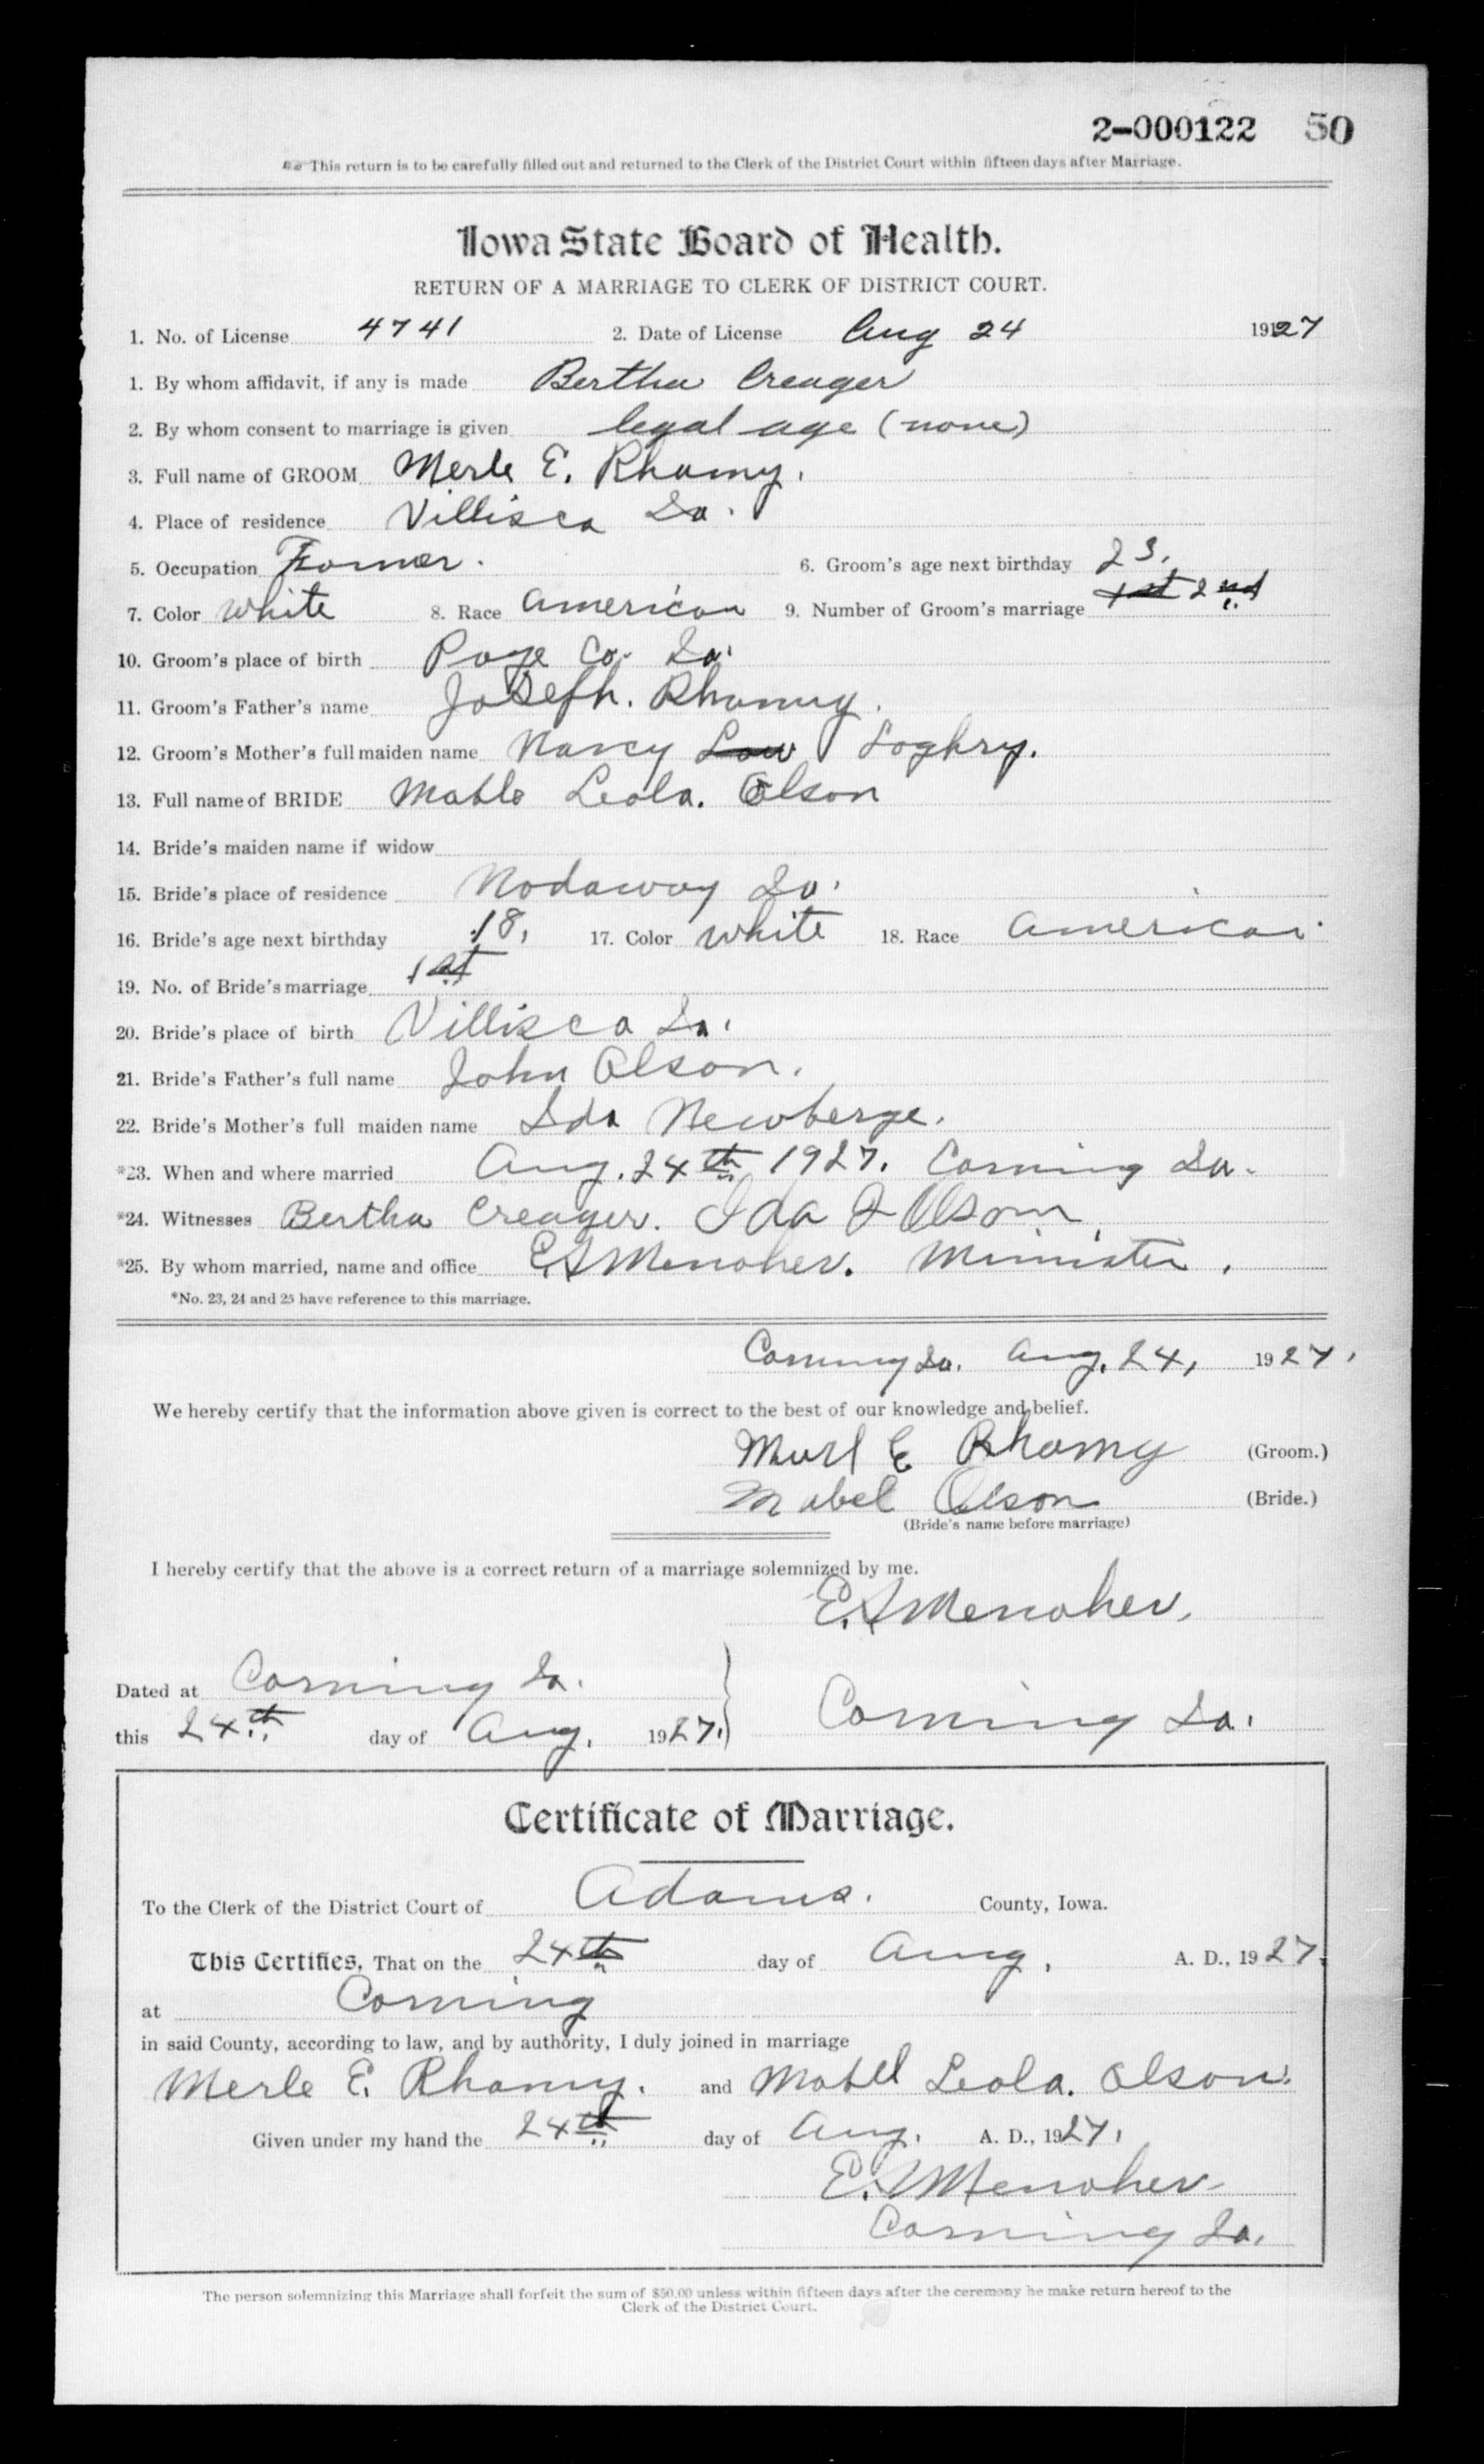 2-000122 50
This return is to be carefully filled out and returned to the Clerk of the District Court within fifteen days after Marriage.
Iowa State Board of Health.
RETURN OF A MARRIAGE TO CLERK OF DISTRICT COURT.
1. No. of License 4741 2. Date of License Aug 24 1927
1. By whom affidavit, if any is made Bertha Creager
2. By whom consent to marriage is given legal age (none)
3. Full name of GROOM Merle E. Rhamy.
4. Place of residence Villisca Ia.
5. Occupation Farmer. 6. Groom's age next birthday 23.
7. Color White 8. Race American 9. Number of Groom's marriage 1st 2nd
10. Groom's place of birth Page Co. Ia.
11. Groom's Father's name Joseph. Rhamy.
12. Groom's Mother's full maiden name Nancy Low Loghry.
13. Full name of BRIDE Mable Leola. Olson
14. Bride's maiden name if widow
15. Bride's place of residence Nodaway Ia.
16. Bride's age next birthday 18. 17. Color White 18. Race American.
19. No. of Bride's marriage 1st
20. Bride's place of birth Villisca Ia.
21. Bride's Father's full name John Olson.
22. Bride's Mother's full maiden name Ida Newberge.
*23. When and where married Aug. 24th 1927. Corning Ia.
*24. Witnesses Bertha Creager. Ida Olson.
*25. By whom married, name and office Menoher. Minister.
*No. 23, 24 and 25 have reference to this marriage.
Corning Ia. Aug. 24, 1927.
We hereby certify that the information above given is correct to the best of our knowledge and belief.
Murl E Rhamy (Groom.)
Mabel Olson (Bride.)
(Bride's name before marriage)
I hereby certify that the above is a correct return of a marriage solemnized by me.
Menoher.
Dated at Corning Ia.
this 24th day of Aug. 1927. Corning Ia.
Certificate of Marriage.
To the Clerk of the District Court of Adams. County, Iowa.
This Certifies, That on the 24th day of Aug. A. D., 1927.
at Corning
in said County, according to law, and by authority, I duly joined in marriage
Merle E. Rhamy. and Mabel Leola. Olson.
Given under my hand the 24th day of Aug. A. D., 1927.
Menoher
Corning Ia.
The person solemnizing this Marriage shall forfeit the sum of $50.00 unless within fifteen days after the ceremony he make return hereof to the
Clerk of the District Court.